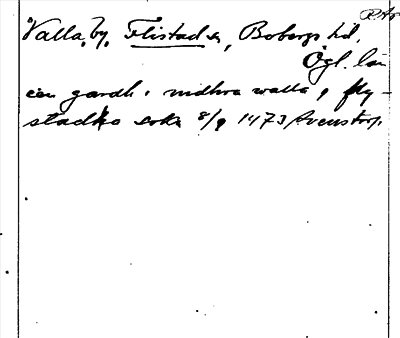 RAp
Valla, by, Flistad sn, Bobergs hd,
Ögl. län
een gardh i nidhra walla i fly-
stadha sokn 8/9 1473 Svenstorp